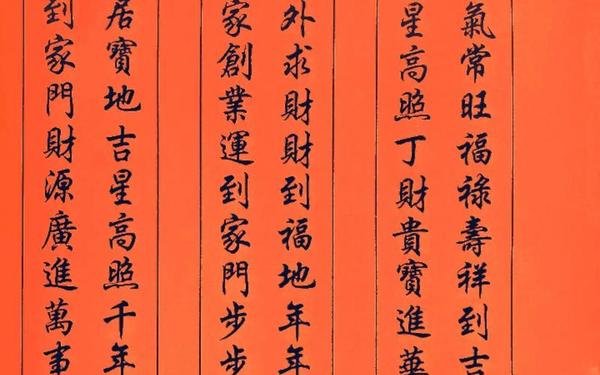 氣常旺福祿壽祥到吉
星高照丁財貴寶進華
外求財財到福地年年
家創業運到家門步步
居寶地吉星高照千年
到家門財源廣進萬事